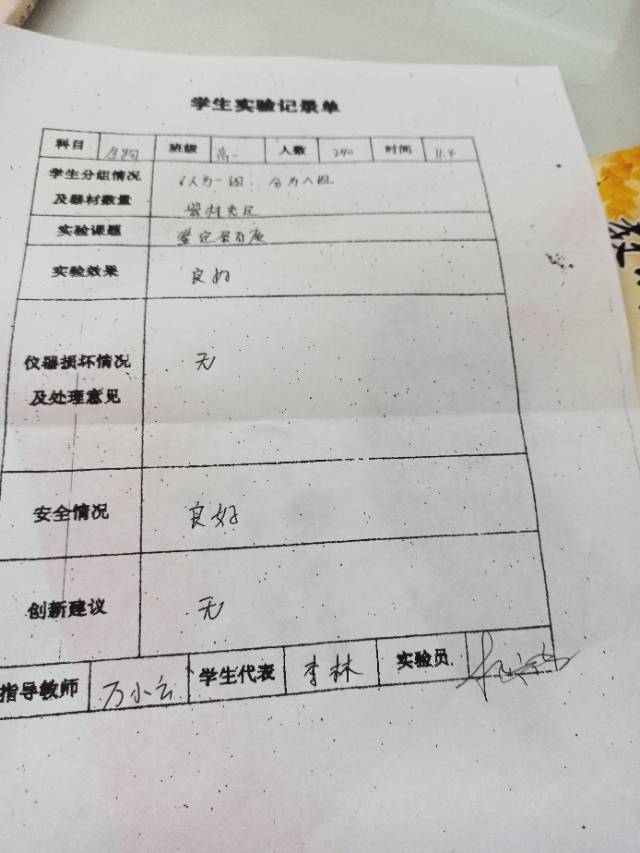 学生实验记录单
科目 生物 班级 高一 人数 240 时间 11.4
学生分组情况 人为一组，分为八组
及器材数量
实验课题
实验效果 良好
仪器损坏情况 无
及处理意见
安全情况 良好
创新建议 无
指导教师 万小云 学生代表 李林 实验员